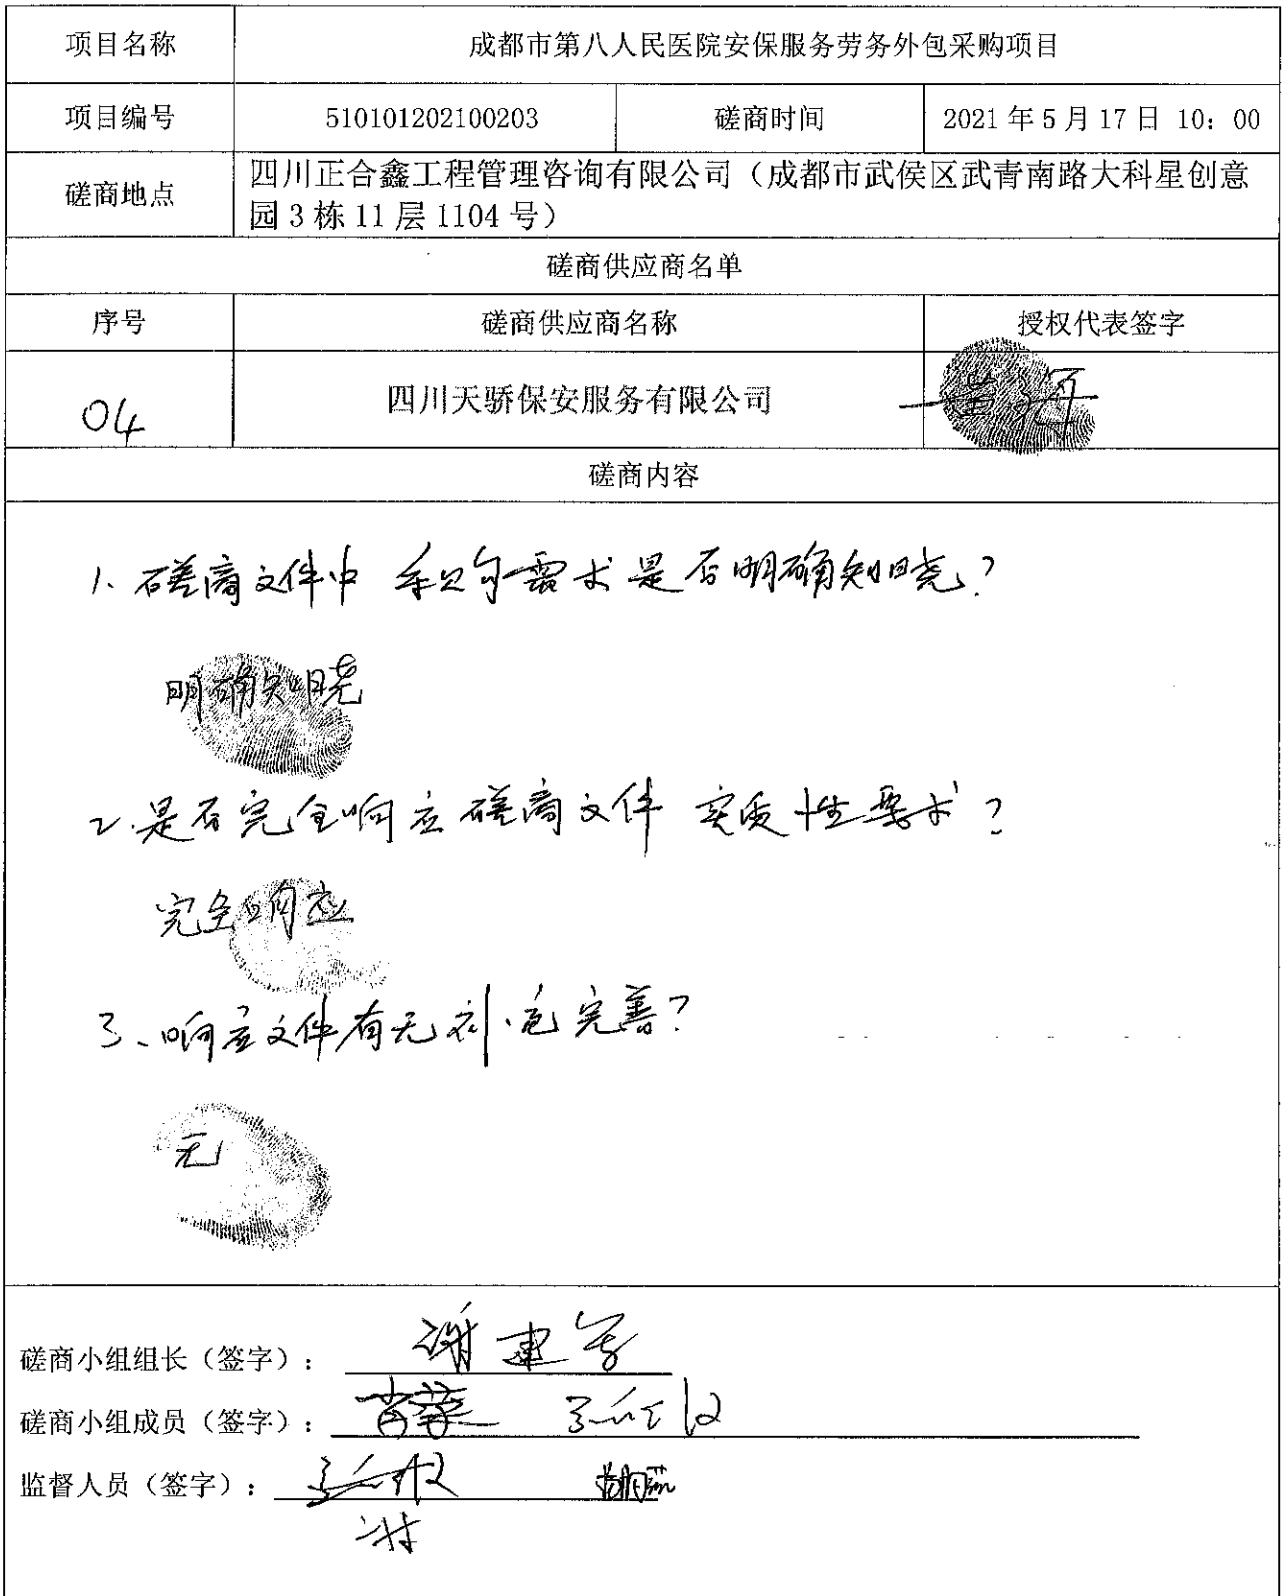 项目名称 成都市第八人民医院安保服务劳务外包采购项目
项目编号 510101202100203 磋商时间 2021年5月17日 10：00
磋商地点 四川正合鑫工程管理咨询有限公司（成都市武侯区武青南路大科星创意
园3栋11层1104号）
磋商供应商名单
序号 磋商供应商名称 授权代表签字
04 四川天骄保安服务有限公司
磋商内容
1、磋商文件中 采购需求是否明确知晓？
明确知晓
2、是否完全响应磋商文件 实质性要求？
完全响应
3、响应文件有无补充完善？
无
磋商小组组长（签字）：
磋商小组成员（签字）：
监督人员（签字）：